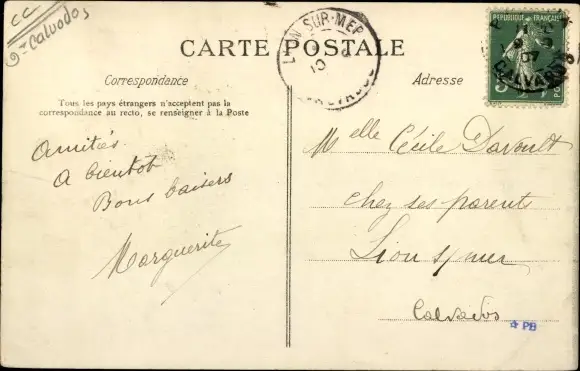 CC
9-Calvados
CARTE POSTALE
Correspondance
Adresse
Tous les pays étrangers n'acceptent pas la
correspondance au recto, se renseigner à la Poste
RÉPUBLIQUE FRANÇAISE
SUR-MER
CALVADOS
Amitiés
A bientot
Bons baisers
Marguerite
Melle Cécile Davoult
chez ses parents
Lion s/mer
Calvados
☆ PB